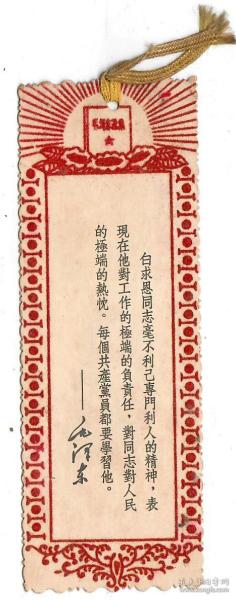 毛澤東選集
白求恩同志毫不利己專門利人的精神，表
現在他對工作的極端的負責任，對同志對人民
的極端的熱忱。每個共產黨員都要學習他。
——毛澤東